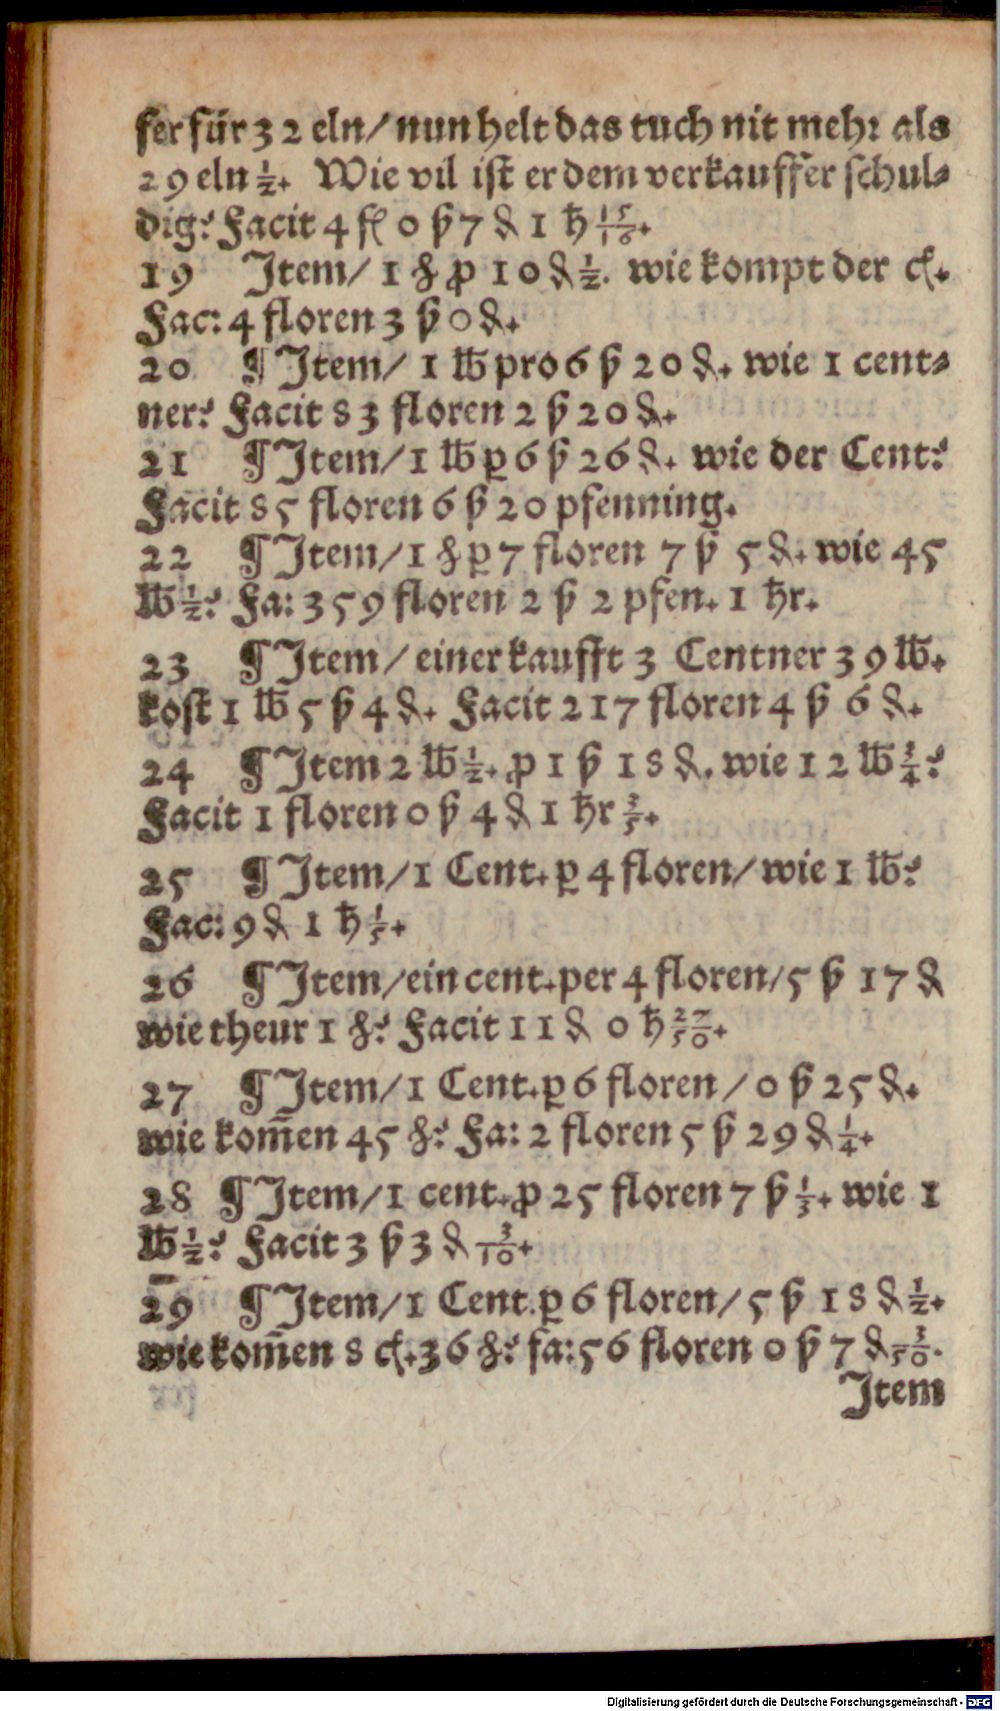 ser für 32 eln/ nun helt das tuch nit mehr als
29 eln ½. Wie vil ist er dem verkauffer schul-
dig? Facit 4 fl 0 ß 7 ₰ 1 ħ 15/16.
19 Item/ 1 ℔ ꝓ 10 ₰ ½. wie kompt der cl.
Fac: 4 floren 3 ß 0 ₰.
20 ¶ Item/ 1 ℔ pro 6 ß 20 ₰. wie 1 cent-
ner? Facit 83 floren 2 ß 20 ₰.
21 ¶ Item/ 1 ℔ ꝑ 6 ß 26 ₰. wie der Cent?
Facit 85 floren 6 ß 20 pfenning.
22 ¶ Item/ 1 ℔ ꝑ 7 floren 7 ß 5 ₰. wie 45
℔ ½? Fa: 359 floren 2 ß 2 pfen. 1 ħr.
23 ¶ Item/ einer kaufft 3 Centner 39 ℔.
kost 1 ℔ 5 ß 4 ₰. Facit 217 floren 4 ß 6 ₰.
24 ¶ Item 2 ℔ ½. ꝓ 1 ß 18 ₰. wie 12 ℔ ¾?
Facit 1 floren 0 ß 4 ₰ 1 ħr 3/5.
25 ¶ Item/ 1 Cent. ꝑ 4 floren/ wie 1 ℔?
Fac: 9 ₰ 1 ħ 1/5.
26 ¶ Item/ ein cent. per 4 floren/ 5 ß 17 ₰
wie theur 1 ℔? Facit 11 ₰ 0 ħ 27/50.
27 ¶ Item/ 1 Cent. ꝑ 6 floren/ 0 ß 25 ₰.
wie kom̄en 45 ℔? Fa: 2 floren 5 ß 29 ₰ ¼.
28 ¶ Item/ 1 cent. ꝓ 25 floren 7 ß ⅓. wie 1
℔ ½? Facit 3 ß 3 ₰ 3/10.
29 ¶ Item/ 1 Cent. ꝑ 6 floren/ 5 ß 18 ₰ ½.
wie kom̄en 8 cl. 36 ℔? fa: 56 floren 0 ß 7 ₰ 3/50.
Item
Digitalisierung gefördert durch die Deutsche Forschungsgemeinschaft - DFG